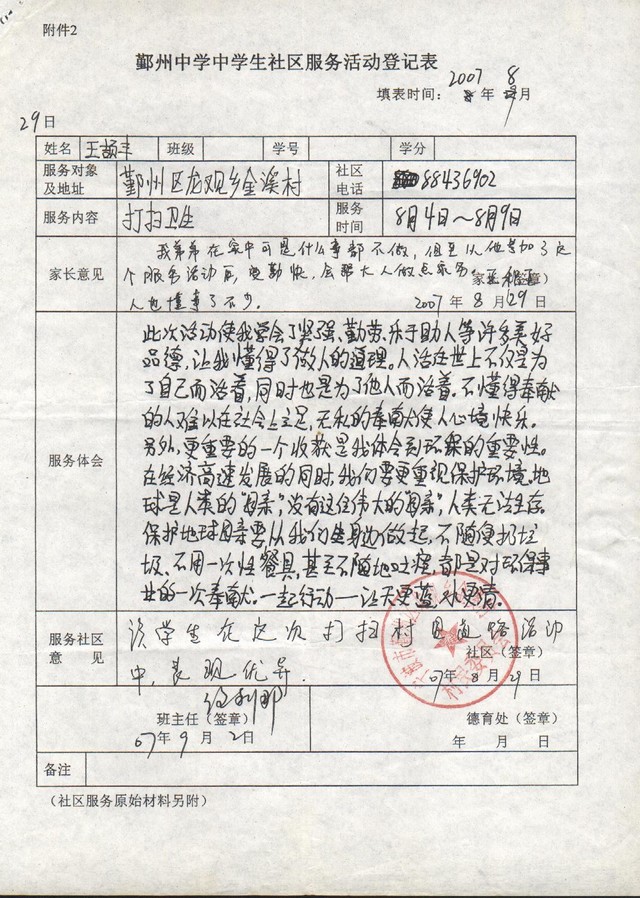 附件2
鄞州中学中学生社区服务活动登记表
填表时间: 2007 年 8 月
29日
姓名 王颉丰 班级 学号 学分
服务对象及地址 鄞州区龙观乡金溪村 社区电话 88436902
服务内容 打扫卫生 服务时间 8月4日~8月9日
家长意见
我弟弟在家中可是什么事都不做，但是从他参加了这
个服务活动后，更勤快，会帮大人做点家务。
家长(签章)
人也懂事了不少。 2007 年 8 月 29 日
服务体会
此次活动使我学会了坚强、勤劳、乐于助人等许多美好
品德，让我懂得了做人的道理。人活在世上不仅是为
了自己而活着，同时也是为了他人而活着。不懂得奉献
的人难以在社会上立足，无私的奉献使人心境快乐。
另外，更重要的一个收获是我体会到环保的重要性。
在经济高速发展的同时，我们要更重视保护环境。地
球是人类的“母亲”，没有这位伟大的“母亲”，人类无法生存。
保护地球母亲要从我们身边做起，不随便扔垃
圾、不用一次性餐具，甚至不随地吐痰，都是对环保事
业的一次奉献。一起行动——让天更蓝，水更清。
服务社区意见
该学生在这次打扫村道路活动
社区(签章)
中，表现优异。 07 年 8 月 29 日
班主任(签章) 德育处(签章)
07 年 9 月 2 日 年 月 日
备注
(社区服务原始材料另附)